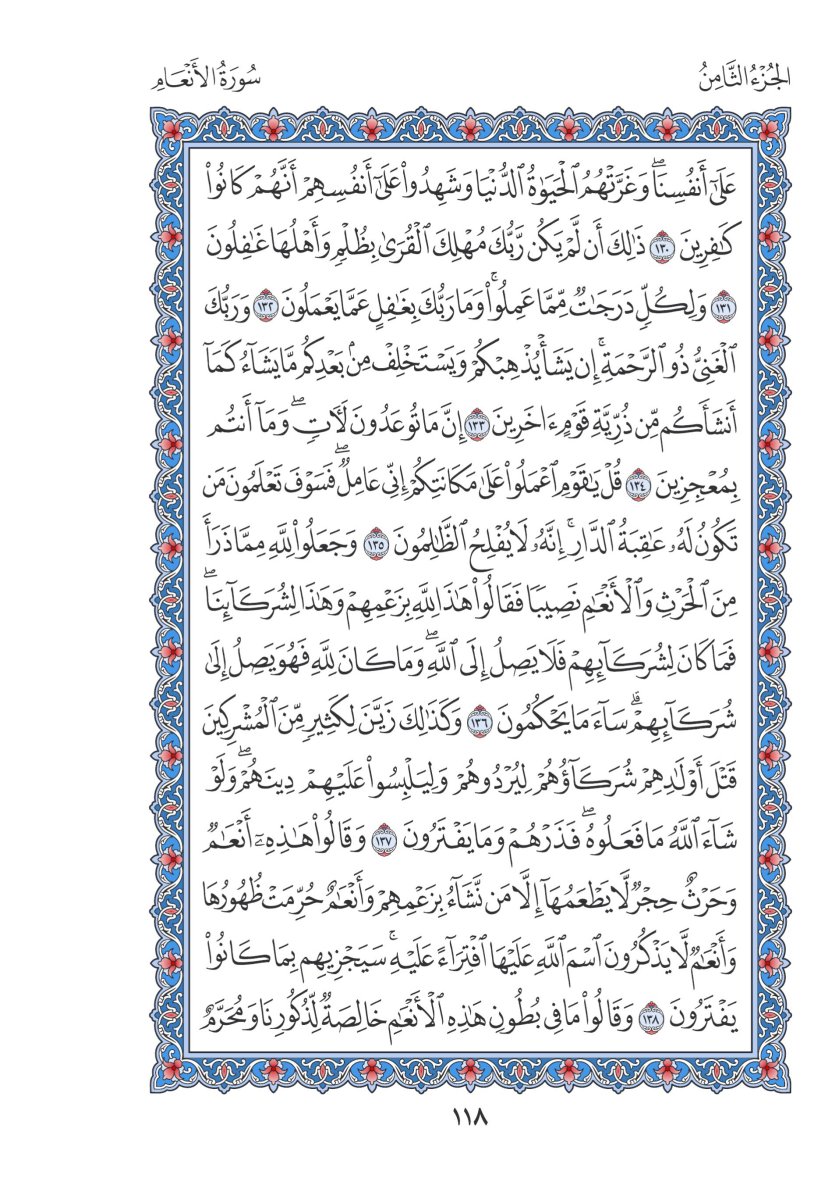 الجُزْءُ الثَّامِنُ
سُورَةُ الأَنْعَامِ
عَلَىٰٓ أَنفُسِنَاۖ وَغَرَّتْهُمُ ٱلْحَيَوٰةُ ٱلدُّنْيَا وَشَهِدُوا۟ عَلَىٰٓ أَنفُسِهِمْ أَنَّهُمْ كَانُوا۟
كَـٰفِرِينَ ١٣٠ ذَٰلِكَ أَن لَّمْ يَكُن رَّبُّكَ مُهْلِكَ ٱلْقُرَىٰ بِظُلْمٍ وَأَهْلُهَا غَـٰفِلُونَ
١٣١ وَلِكُلٍّ دَرَجَـٰتٌ مِّمَّا عَمِلُوا۟ۚ وَمَا رَبُّكَ بِغَـٰفِلٍ عَمَّا يَعْمَلُونَ ١٣٢ وَرَبُّكَ
ٱلْغَنِىُّ ذُو ٱلرَّحْمَةِۚ إِن يَشَأْ يُذْهِبْكُمْ وَيَسْتَخْلِفْ مِنۢ بَعْدِكُم مَّا يَشَآءُ كَمَآ
أَنشَأَكُم مِّن ذُرِّيَّةِ قَوْمٍ ءَاخَرِينَ ١٣٣ إِنَّ مَا تُوعَدُونَ لَـَٔاتٍۖ وَمَآ أَنتُم
بِمُعْجِزِينَ ١٣٤ قُلْ يَـٰقَوْمِ ٱعْمَلُوا۟ عَلَىٰ مَكَانَتِكُمْ إِنِّى عَامِلٌۖ فَسَوْفَ تَعْلَمُونَ مَن
تَكُونُ لَهُۥ عَـٰقِبَةُ ٱلدَّارِۚ إِنَّهُۥ لَا يُفْلِحُ ٱلظَّـٰلِمُونَ ١٣٥ وَجَعَلُوا۟ لِلَّهِ مِمَّا ذَرَأَ
مِنَ ٱلْحَرْثِ وَٱلْأَنْعَـٰمِ نَصِيبًا فَقَالُوا۟ هَـٰذَا لِلَّهِ بِزَعْمِهِمْ وَهَـٰذَا لِشُرَكَآئِنَاۖ
فَمَا كَانَ لِشُرَكَآئِهِمْ فَلَا يَصِلُ إِلَى ٱللَّهِۖ وَمَا كَانَ لِلَّهِ فَهُوَ يَصِلُ إِلَىٰ
شُرَكَآئِهِمْۗ سَآءَ مَا يَحْكُمُونَ ١٣٦ وَكَذَٰلِكَ زَيَّنَ لِكَثِيرٍ مِّنَ ٱلْمُشْرِكِينَ
قَتْلَ أَوْلَـٰدِهِمْ شُرَكَآؤُهُمْ لِيُرْدُوهُمْ وَلِيَلْبِسُوا۟ عَلَيْهِمْ دِينَهُمْۖ وَلَوْ
شَآءَ ٱللَّهُ مَا فَعَلُوهُۖ فَذَرْهُمْ وَمَا يَفْتَرُونَ ١٣٧ وَقَالُوا۟ هَـٰذِهِۦٓ أَنْعَـٰمٌ
وَحَرْثٌ حِجْرٌ لَّا يَطْعَمُهَآ إِلَّا مَن نَّشَآءُ بِزَعْمِهِمْ وَأَنْعَـٰمٌ حُرِّمَتْ ظُهُورُهَا
وَأَنْعَـٰمٌ لَّا يَذْكُرُونَ ٱسْمَ ٱللَّهِ عَلَيْهَا ٱفْتِرَآءً عَلَيْهِۚ سَيَجْزِيهِم بِمَا كَانُوا۟
يَفْتَرُونَ ١٣٨ وَقَالُوا۟ مَا فِى بُطُونِ هَـٰذِهِ ٱلْأَنْعَـٰمِ خَالِصَةٌ لِّذُكُورِنَا وَمُحَرَّمٌ
١١٨